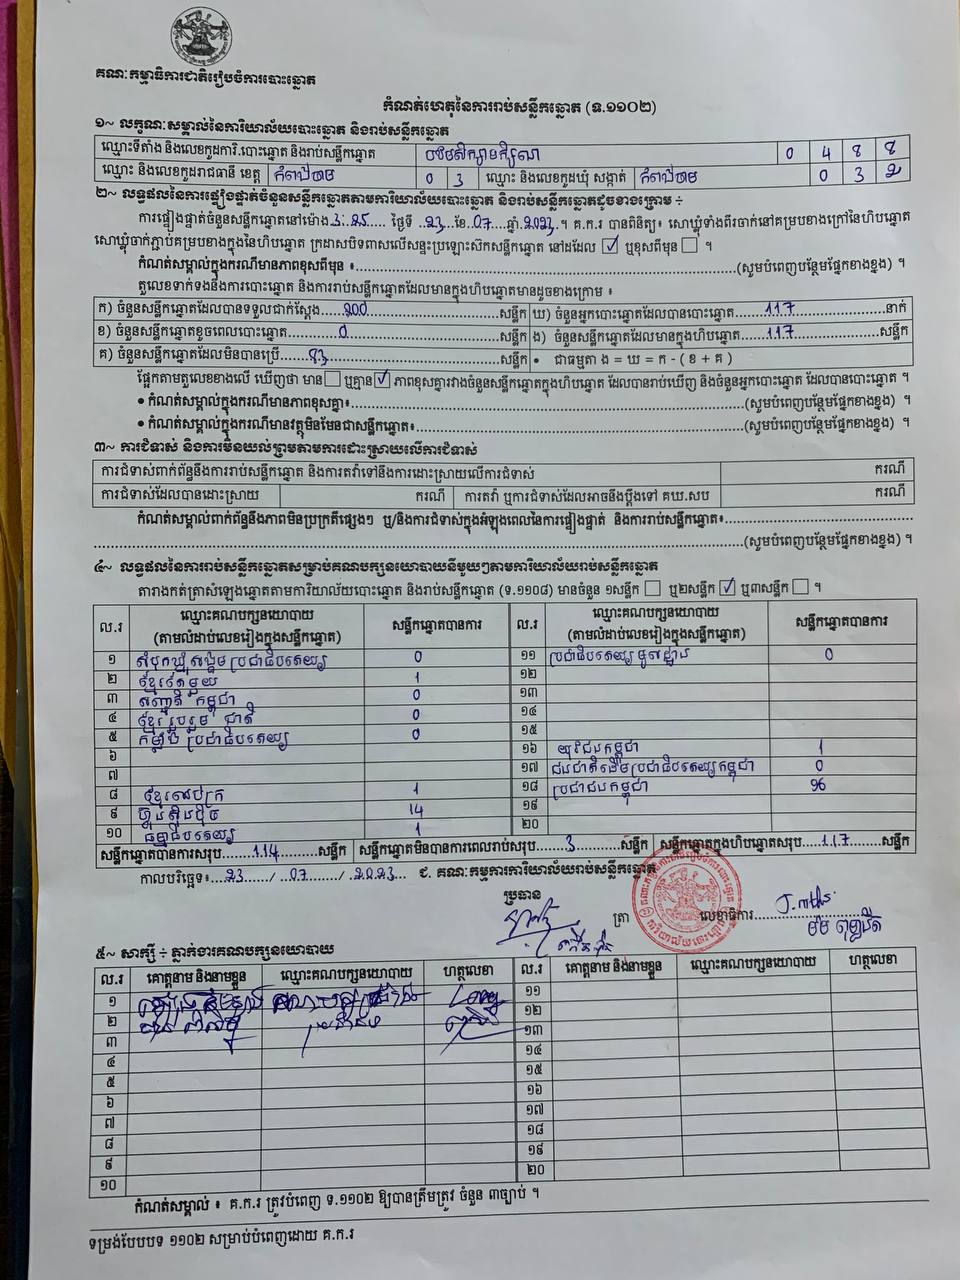 គណៈកម្មាធិការជាតិរៀបចំការបោះឆ្នោត
កំណត់ហេតុនៃការរាប់សន្លឹកឆ្នោត (ទ.១១០២)
១~ លក្ខណៈសម្គាល់នៃការិយាល័យបោះឆ្នោត និងរាប់សន្លឹកឆ្នោត
ឈ្មោះទីតាំង និងលេខកូដការិ.បោះឆ្នោត និងរាប់សន្លឹកឆ្នោត 0 4 8 8
ឈ្មោះ និងលេខកូដរាជធានី ខេត្ត កំពង់ចាម 0 3 ឈ្មោះ និងលេខកូដឃុំ សង្កាត់ កំពង់ចាម 0 3 2
២~ លទ្ធផលនៃការផ្ទៀងផ្ទាត់ចំនួនសន្លឹកឆ្នោតតាមការិយាល័យបោះឆ្នោត និងរាប់សន្លឹកឆ្នោតដូចខាងក្រោម ÷
ការផ្ទៀងផ្ទាត់ចំនួនសន្លឹកឆ្នោតនៅម៉ោង 3:25 ថ្ងៃទី 23 ខែ 07 ឆ្នាំ 2023 ។ គ.ក.រ បានពិនិត្យ៖ សោឃ្លុំទាំងពីរចាក់នៅគម្របខាងក្រៅនៃហិបឆ្នោត
សោឃ្លុំចាក់ភ្ជាប់គម្របខាងក្នុងនៃហិបឆ្នោត ក្រដាសបិទពាសលើសន្ទះប្រឡោះស៊កសន្លឹកឆ្នោត នៅដដែល ☑ ឬខុសពីមុន ☐ ។
កំណត់សម្គាល់ក្នុងករណីមានភាពខុសពីមុន ៖ (សូមបំពេញបន្ថែមផ្នែកខាងខ្នង) ។
តួលេខទាក់ទងនឹងការបោះឆ្នោត និងការរាប់សន្លឹកឆ្នោតដែលមានក្នុងហិបឆ្នោតមានដូចខាងក្រោម ៖
ក) ចំនួនសន្លឹកឆ្នោតដែលបានទទួលជាក់ស្តែង 200 សន្លឹក ឃ) ចំនួនអ្នកបោះឆ្នោតដែលបានបោះឆ្នោត 117 នាក់
ខ) ចំនួនសន្លឹកឆ្នោតខូចពេលបោះឆ្នោត 0 សន្លឹក ង) ចំនួនសន្លឹកឆ្នោតដែលមានក្នុងហិបឆ្នោត 117 សន្លឹក
គ) ចំនួនសន្លឹកឆ្នោតដែលមិនបានប្រើ 83 សន្លឹក • ជាធម្មតា ង = ឃ = ក - ( ខ + គ )
ផ្អែកតាមតួលេខខាងលើ ឃើញថា មាន ☐ ឬគ្មាន ☑ ភាពខុសគ្នារវាងចំនួនសន្លឹកឆ្នោតក្នុងហិបឆ្នោត ដែលបានរាប់ឃើញ និងចំនួនអ្នកបោះឆ្នោត ដែលបានបោះឆ្នោត ។
• កំណត់សម្គាល់ក្នុងករណីមានភាពខុសគ្នា៖ (សូមបំពេញបន្ថែមផ្នែកខាងខ្នង) ។
• កំណត់សម្គាល់ក្នុងករណីមានវត្ថុមិនមែនជាសន្លឹកឆ្នោត៖ (សូមបំពេញបន្ថែមផ្នែកខាងខ្នង) ។
៣~ ការជំទាស់ និងការមិនយល់ព្រមតាមការដោះស្រាយលើការជំទាស់
ការជំទាស់ពាក់ព័ន្ធនឹងការរាប់សន្លឹកឆ្នោត និងការតវ៉ាទៅនឹងការដោះស្រាយលើការជំទាស់ ករណី
ការជំទាស់ដែលបានដោះស្រាយ ករណី ការតវ៉ា ឬការជំទាស់ដែលអាចនឹងប្តឹងទៅ គឃ.សប ករណី
កំណត់សម្គាល់ពាក់ព័ន្ធនឹងភាពមិនប្រក្រតីផ្សេងៗ ឬ/និងការជំទាស់ក្នុងអំឡុងពេលនៃការផ្ទៀងផ្ទាត់ និងការរាប់សន្លឹកឆ្នោត៖
(សូមបំពេញបន្ថែមផ្នែកខាងខ្នង) ។
៤~ លទ្ធផលនៃការរាប់សន្លឹកឆ្នោតសម្រាប់គណបក្សនយោបាយនីមួយៗតាមការិយាល័យរាប់សន្លឹកឆ្នោត
តារាងកត់ត្រាសំឡេងឆ្នោតតាមការិយាល័យបោះឆ្នោត និងរាប់សន្លឹកឆ្នោត (ទ.១១០៨) មានចំនួន ១សន្លឹក ☐ ឬ២សន្លឹក ☑ ឬ៣សន្លឹក ☐ ។
ល.រ ឈ្មោះគណបក្សនយោបាយ (តាមលំដាប់លេខរៀងក្នុងសន្លឹកឆ្នោត) សន្លឹកឆ្នោតបានការ ល.រ ឈ្មោះគណបក្សនយោបាយ (តាមលំដាប់លេខរៀងក្នុងសន្លឹកឆ្នោត) សន្លឹកឆ្នោតបានការ
១ សំបុកឃ្មុំសង្គមប្រជាធិបតេយ្យ 0 ១១ ប្រជាធិបតេយ្យមូលដ្ឋាន 0
២ ខ្មែរតែមួយ 1 ១២
៣ សញ្ជាតិកម្ពុជា 0 ១៣
៤ ខ្មែររួបរួមជាតិ 0 ១៤
៥ កម្លាំងប្រជាធិបតេយ្យ 0 ១៥
៦ ១៦ យុវជនកម្ពុជា 1
៧ ១៧ ជនជាតិដើមប្រជាធិបតេយ្យកម្ពុជា 0
៨ ខ្មែរអភិរក្ស 1 ១៨ ប្រជាជនកម្ពុជា 96
៩ ហ្វ៊ុនស៊ិនប៉ិច 14 ១៩
១០ ធម្មាធិបតេយ្យ 1 ២០
សន្លឹកឆ្នោតបានការសរុប 114 សន្លឹក សន្លឹកឆ្នោតមិនបានការពេលរាប់សរុប 3 សន្លឹក សន្លឹកឆ្នោតក្នុងហិបឆ្នោតសរុប 117 សន្លឹក
កាលបរិច្ឆេទ៖ 23 / 07 / 2023 ជ. គណៈកម្មការការិយាល័យរាប់សន្លឹកឆ្នោត
ប្រធាន
ត្រា លេខាធិការ
៥~ សាក្សី ÷ ភ្នាក់ងារគណបក្សនយោបាយ
ល.រ គោត្តនាម និងនាមខ្លួន ឈ្មោះគណបក្សនយោបាយ ហត្ថលេខា ល.រ គោត្តនាម និងនាមខ្លួន ឈ្មោះគណបក្សនយោបាយ ហត្ថលេខា
១ ១១
២ ១២
៣ ១៣
៤ ១៤
៥ ១៥
៦ ១៦
៧ ១៧
៨ ១៨
៩ ១៩
១០ ២០
កំណត់សម្គាល់ ៖ គ.ក.រ ត្រូវបំពេញ ទ.១១០២ ឱ្យបានត្រឹមត្រូវ ចំនួន ៣ច្បាប់ ។
ទម្រង់បែបបទ ១១០២ សម្រាប់បំពេញដោយ គ.ក.រ